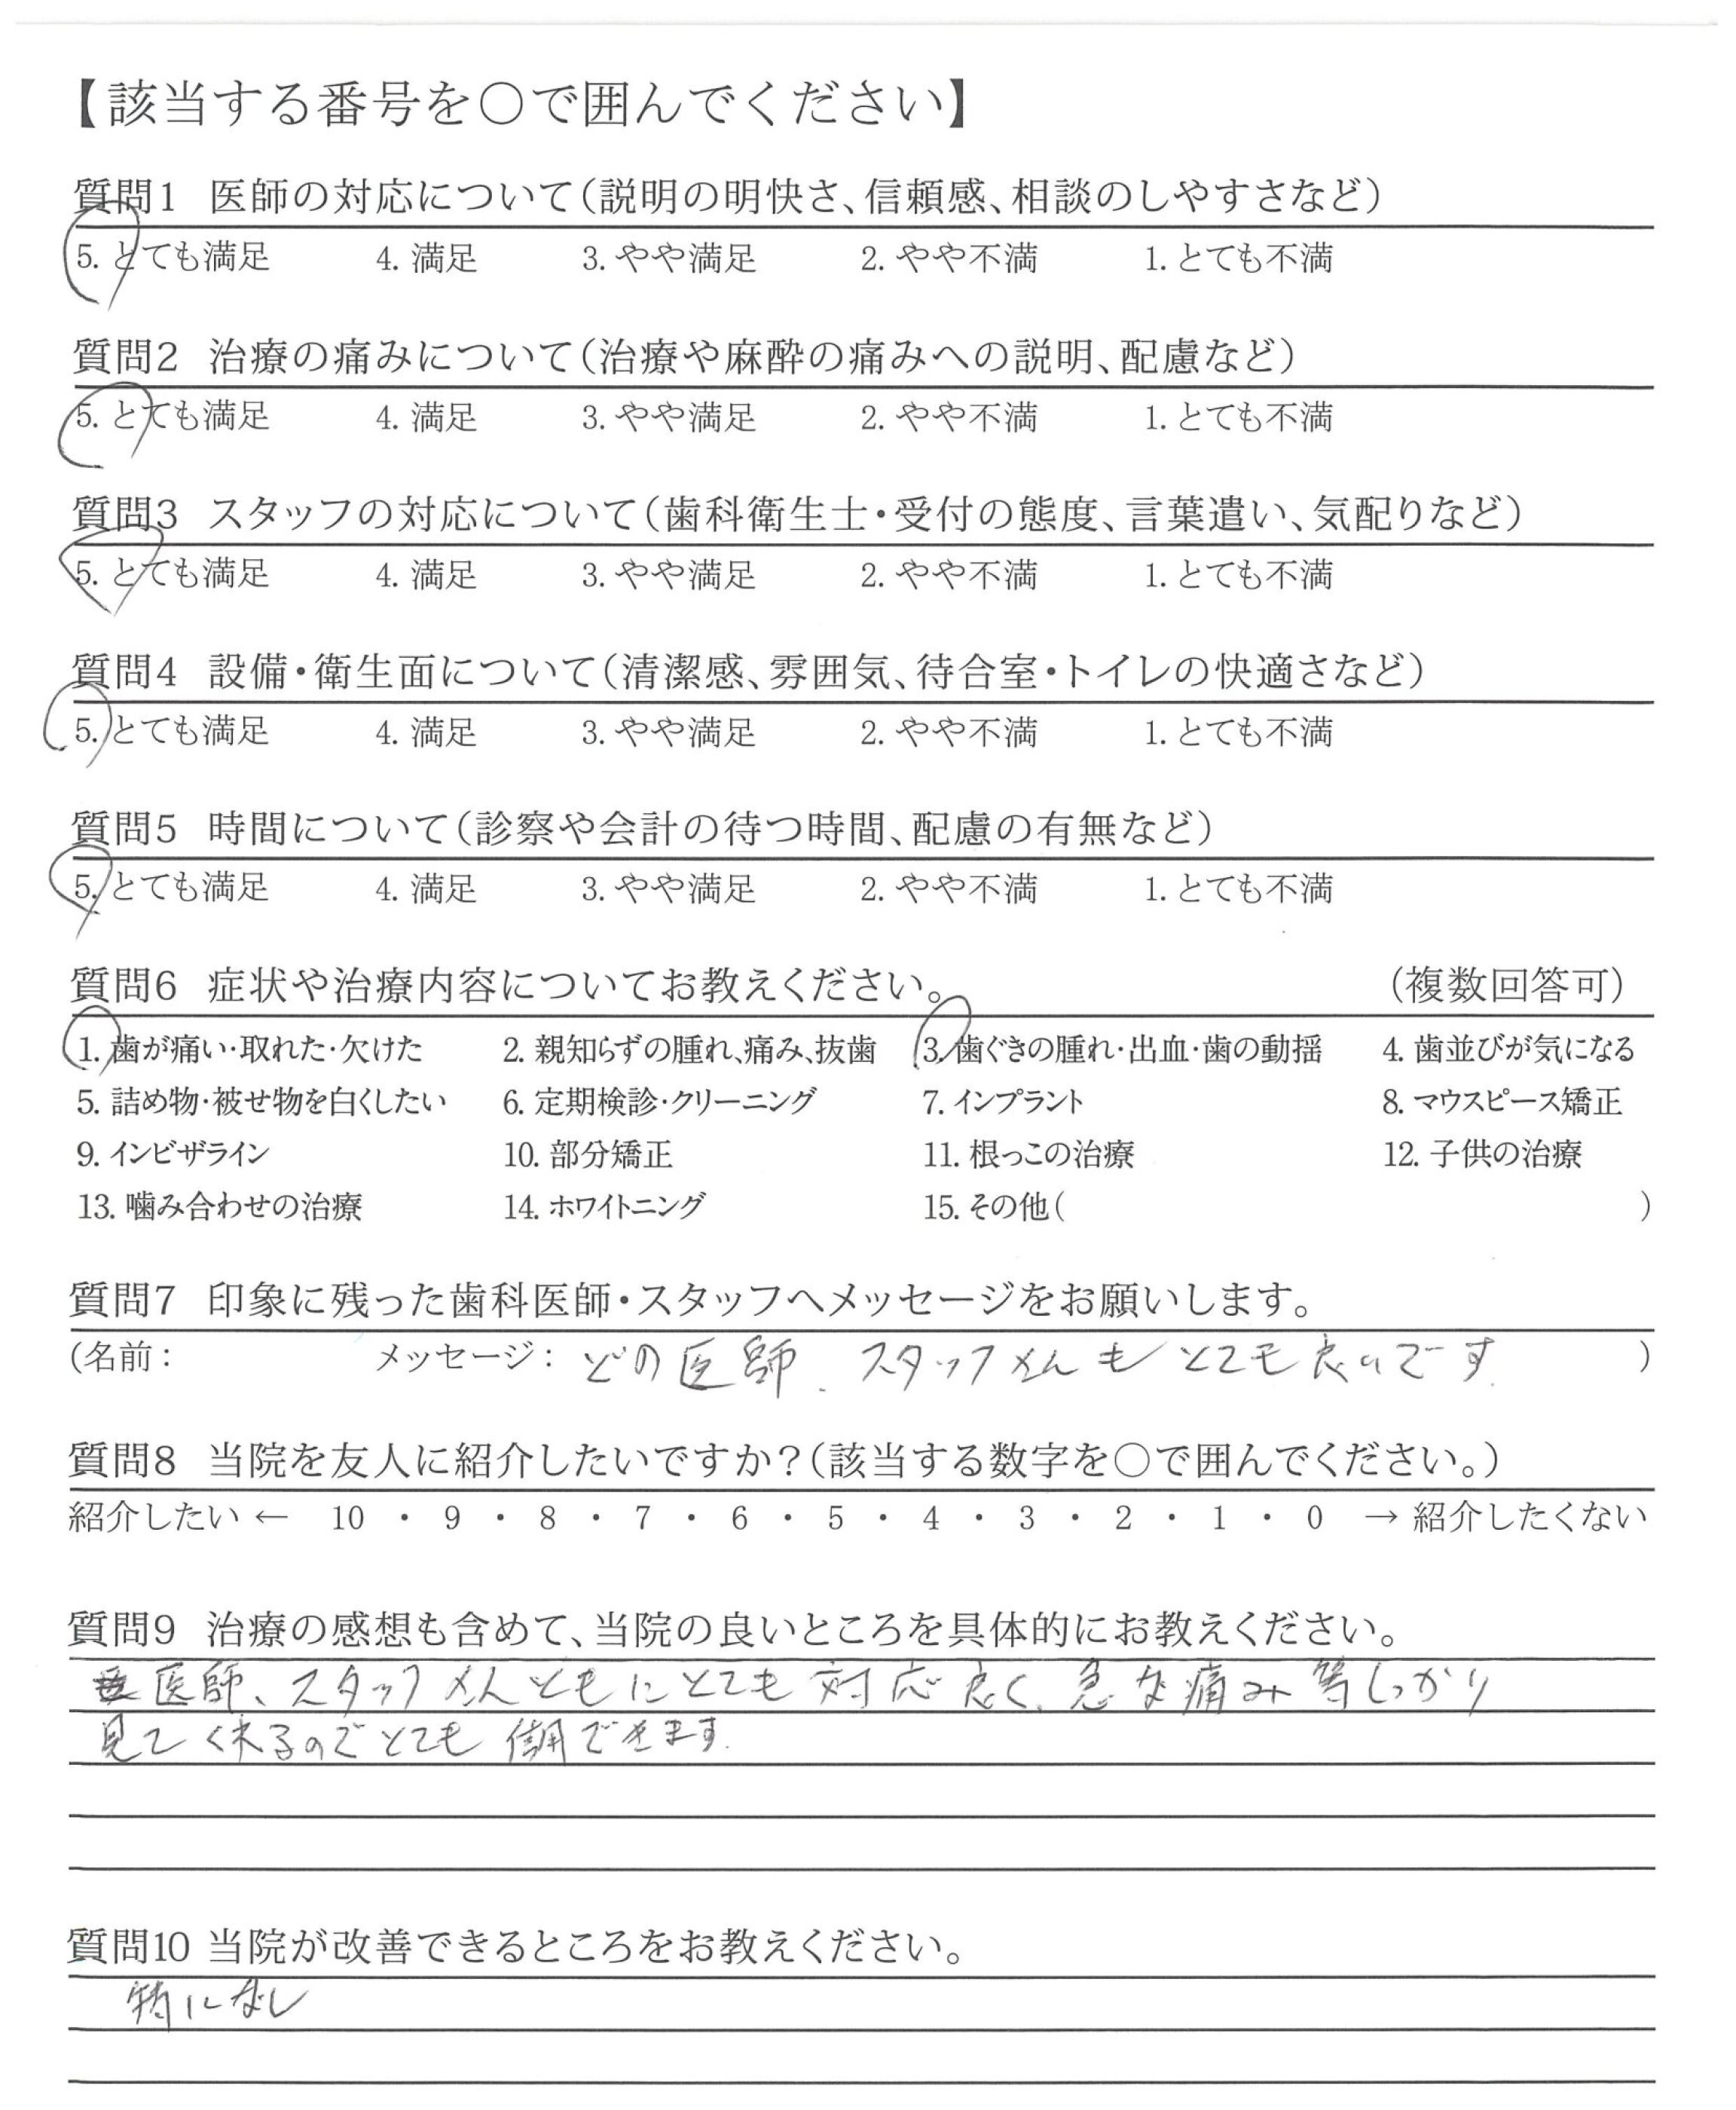 【該当する番号を〇で囲んでください】
質問1 医師の対応について(説明の明快さ、信頼感、相談のしやすさなど)
5. とても満足 4. 満足 3. やや満足 2. やや不満 1. とても不満
質問2 治療の痛みについて(治療や麻酔の痛みへの説明、配慮など)
5. とても満足 4. 満足 3. やや満足 2. やや不満 1. とても不満
質問3 スタッフの対応について(歯科衛生士・受付の態度、言葉遣い、気配りなど)
5. とても満足 4. 満足 3. やや満足 2. やや不満 1. とても不満
質問4 設備・衛生面について(清潔感、雰囲気、待合室・トイレの快適さなど)
5. とても満足 4. 満足 3. やや満足 2. やや不満 1. とても不満
質問5 時間について(診察や会計の待つ時間、配慮の有無など)
5. とても満足 4. 満足 3. やや満足 2. やや不満 1. とても不満
質問6 症状や治療内容についてお教えください。 (複数回答可)
1. 歯が痛い・取れた・欠けた 2. 親知らずの腫れ、痛み、抜歯 3. 歯ぐきの腫れ・出血・歯の動揺 4. 歯並びが気になる
5. 詰め物・被せ物を白くしたい 6. 定期検診・クリーニング 7. インプラント 8. マウスピース矯正
9. インビザライン 10. 部分矯正 11. 根っこの治療 12. 子供の治療
13. 噛み合わせの治療 14. ホワイトニング 15. その他( )
質問7 印象に残った歯科医師・スタッフへメッセージをお願いします。
(名前: メッセージ: どの医師、スタッフさんもとても良いです )
質問8 当院を友人に紹介したいですか?(該当する数字を〇で囲んでください。)
紹介したい ← 10 ・ 9 ・ 8 ・ 7 ・ 6 ・ 5 ・ 4 ・ 3 ・ 2 ・ 1 ・ 0 → 紹介したくない
質問9 治療の感想も含めて、当院の良いところを具体的にお教えください。
医師、スタッフさんともにとても対応良く、急な痛み等しっかり
見てくれるのでとても信用できます.
質問10 当院が改善できるところをお教えください。
特になし